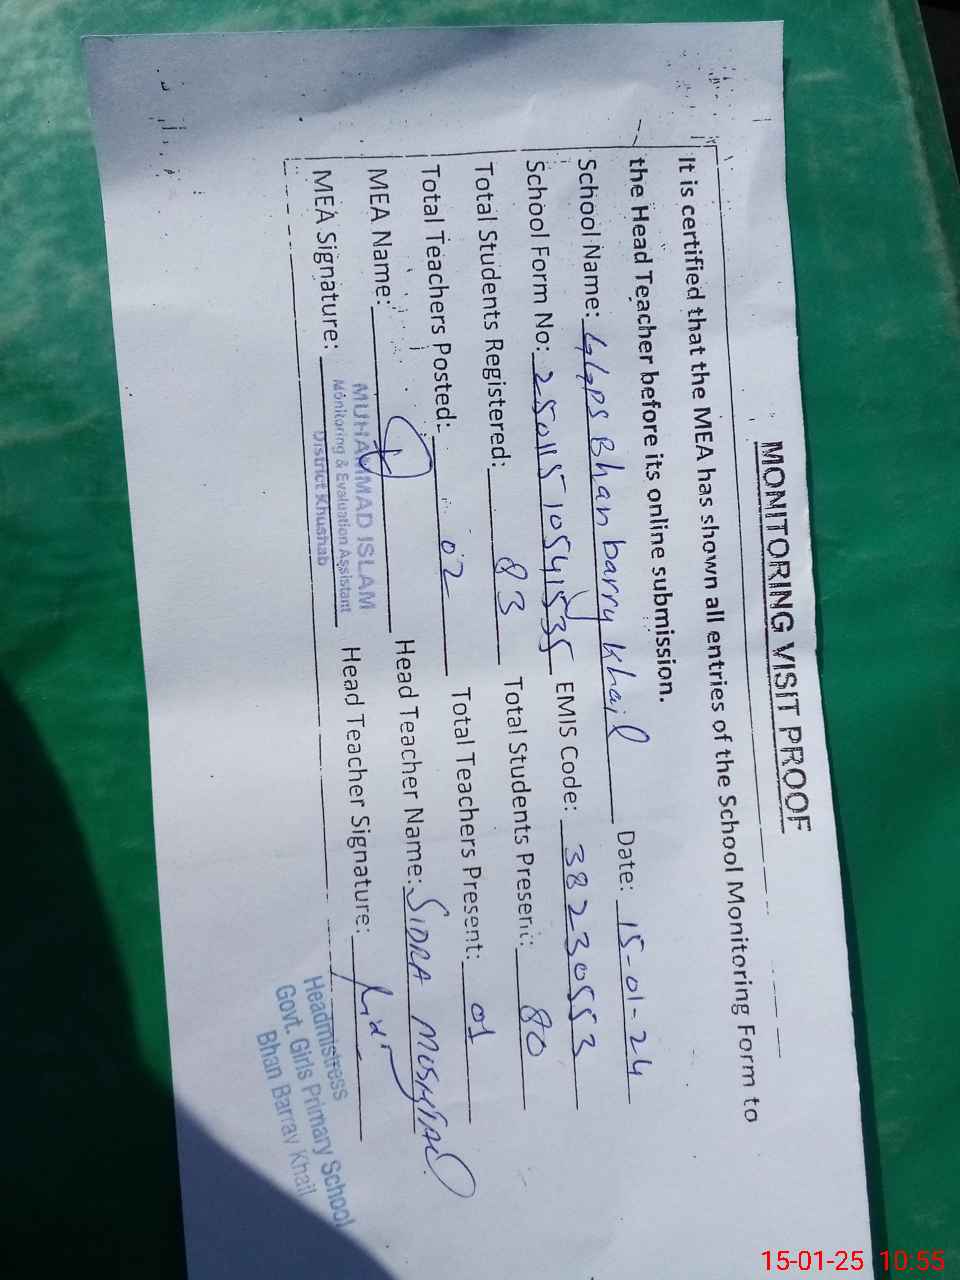 MONITORING VISIT PROOF
It is certified that the MEA has shown all entries of the School Monitoring Form to
the Head Teacher before its online submission.
School Name: GGPS Bhan barry Khail Date: 15-01-24
School Form No: 25011510541535 EMIS Code: 38230553
Total Students Registered: 83 Total Students Present: 80
Total Teachers Posted: 02 Total Teachers Present: 01
MEA Name: Head Teacher Name: SIDRA MUSHTAQ
MUHAMMAD ISLAM
Monitoring & Evaluation Assistant
District Khushab
MEA Signature: Head Teacher Signature:
Headmistress
Govt. Girls Primary School
Bhan Barray Khail
15-01-25 10:55